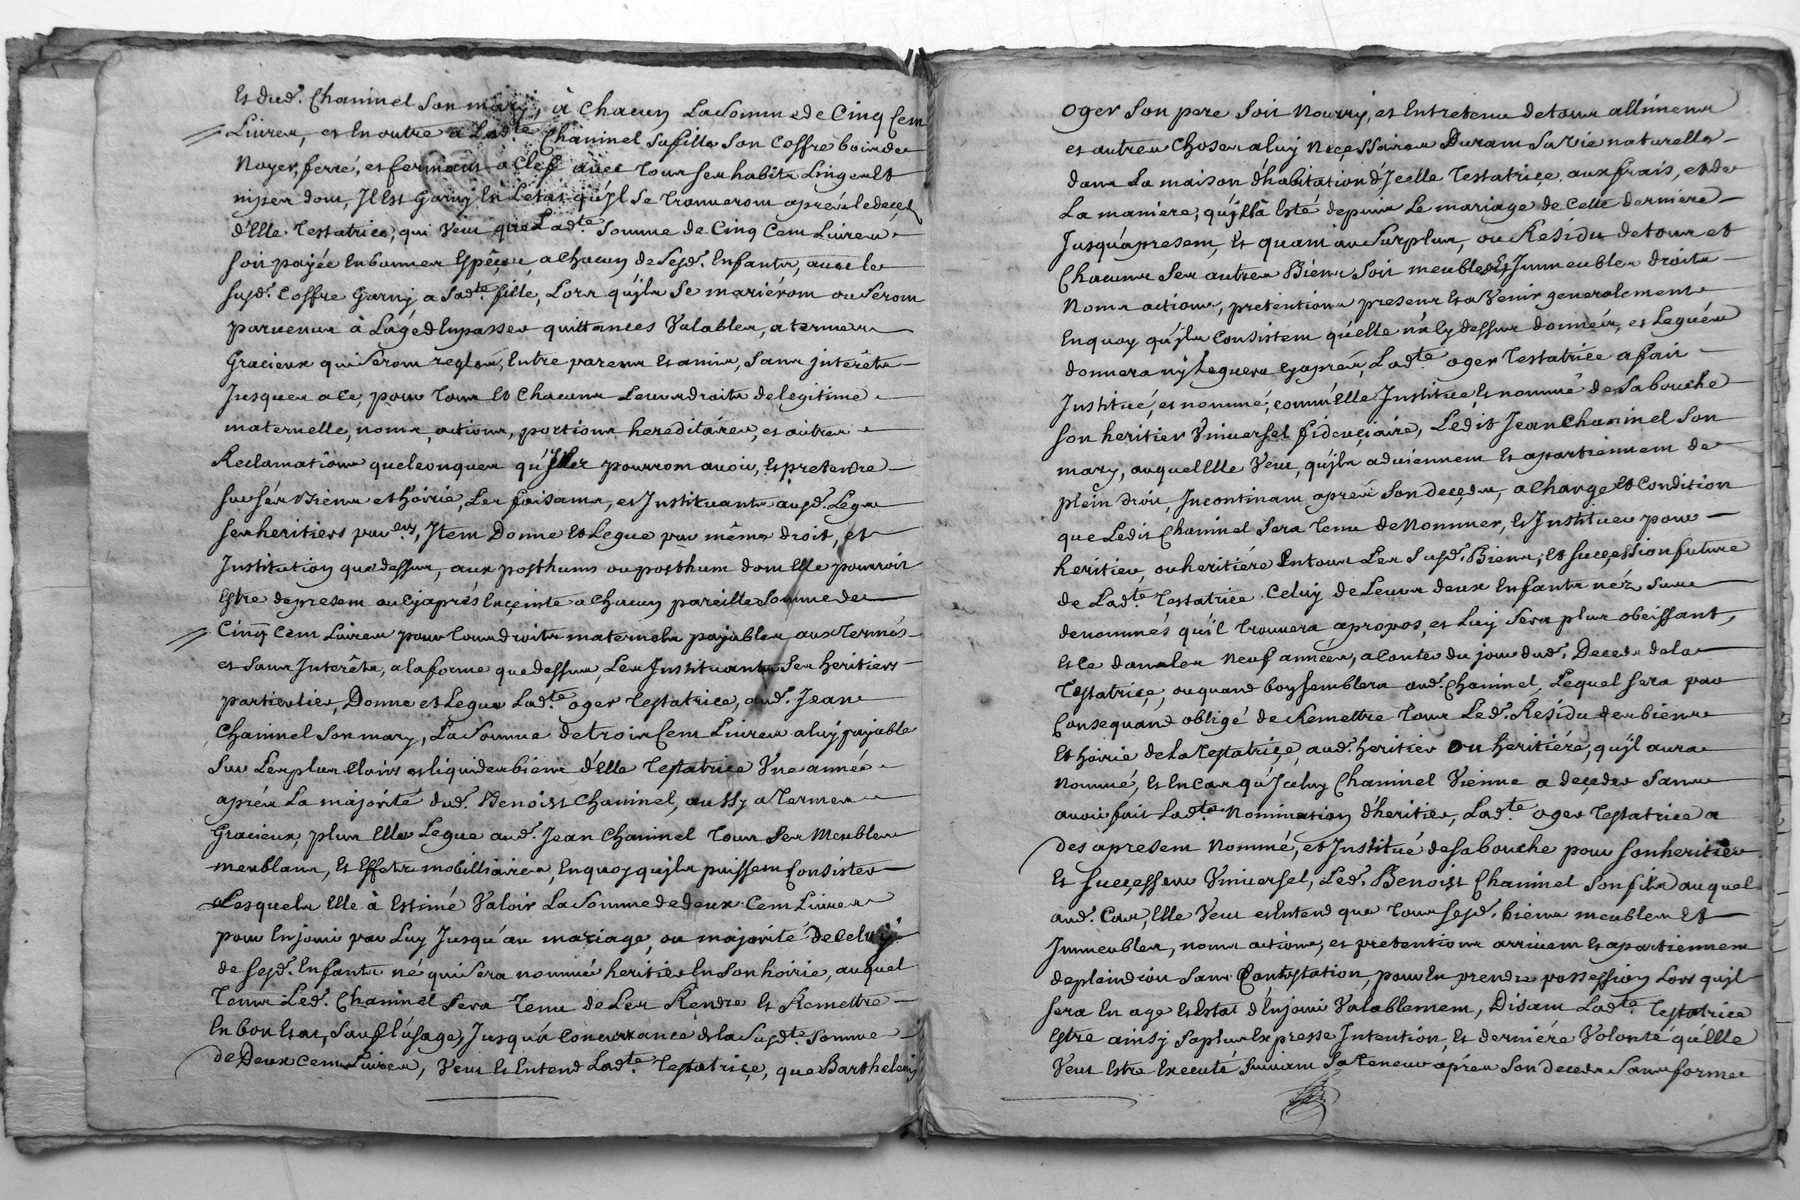 Et dud. Chaninel son mary, à chacun La Somme de Cinq Cent
Livres, et en outre a Ladte Chaninel sa fille son Coffre bois de
Noyer, ferré, et fermant a Clef, avec Tous ses habits Linges Et
nipes dont Il Est Garny En L'etat qu'jl se Trouveront aprés le decés
d'Elle Testatrice, qui Veut que Ladte Somme de Cinq Cent Livres
soit payée En bonnes Espêces a Chacun de Sesd. Enfants, avec le
susd. Coffre Garny a Sadte fille, Lors qu'jls Se mariéront ou Seront
parvenus à L'agé d'En passer quittances Valables, a termes
Gracieux qui Seront reglés, Entre parens Et amis, sans interêts
Jusques a Ce, pour Tous Et Chacuns Leurs droits de legitime
maternelle, noms, actions, portions hereditaires, et autres
Reclamations quelconques qu'Jls pourront avoir, Et pretendre
sur sés Biens et hoirie, Les faisants, et Instituants ausd. Legs
ses heritiers par eux, Item Donne Et Legue par même droit, et
Institution que dessus, aux posthums ou posthum dont Elle pourroit
Estre de present ou Cy aprés Enceinte a Chacun pareille Somme de
Cinq Cent Livres pour Tous droits maternels payables aux Termes
et sans Interêts, a la forme que dessus, Les Instituants Ses heritiers
particuliers, Donne et Legue Ladte oger Testatrice, aud. Jean
Chaninel Son mary, La Somme de trois Cent Livres a luy payable
Sur Les plus Clairs et liquides biens d'Elle Testatrice Une année
aprés La majorité dud. Benoist Chaninel, aussy a Termes
Gracieux, plus Elle Legue aud. Jean Chaninel Tous Ses Meubles
meublans, Et Effets mobilliaires, En quoy qu'jls puissent Consister
Lesquels Elle à Estimé Valoir La Somme de deux Cent Livres
pour En jouir par Luy Jusqu'au mariage, ou majorité de Celuy
de Sesd. Enfants né qui sera nommé heritier En Son hoirie, auquel
Tems Led. Chaninel Sera Tenu de Les Rendre Et Remettre
En bon Etat, Sauf l'usage, Jusqu'a Concurrance de la Susdte Somme
de Deux Cent Livres, Veut Et Entend Ladte Testatrice, que Barthelemy
Oger Son pere Soit Nourry, et Entretenu de tous allimens
et autres Choses a luy necessaires Durant Sa Vie naturelle
dans La maison d'habitation d'Jcelle Testatrice aux frais, et de
La maniere, qu'jl a Esté depuis Le mariage de Cette derniere
Jusqu'a present, Et quant au Surplus, ou Residu de tous et
Chacuns Ses autres Biens Soit meubles Et Jmmeubles droits
Noms actions, pretentions presens Et a Venir generalement
En quoy qu'jls Consistent qu'elle n'a Cy dessus donnéz, et Legués
donnera ny Leguera Cy aprés, Ladte oger Testatrice a fait
Institué, et nommé, comm'Elle Institue, Et nomme de Sa bouche
son heritier Universel fiduciaire, Ledit Jean Chaninel Son
mary, auquel Elle Veut, qu'jls adviennent Et apartiennent de
plein droit, Incontinant aprés Son Decéds, a Charge Et Condition
que Ledit Chaninel Sera Tenu de Nommer, Et Instituer pour
heritier, ou heritiére En tous Les Susd. Biens, Et Succession future
de Ladte Testatrice Celuy de Leurs deux Enfants néz Sus
denommés qu'il Trouvera a propos, et Luy Sera plus obeissant,
Et Ce dans les Neuf années, a Conter du jour dud. Deceds de la
Testatrice, ou quand bon semblera aud. Chaninel, Lequel Sera par
Consequand obligé de Remettre Tous Led. Residu des biens
Et hoirie de la Testatrice, aud. heritier Ou heritiére, qu'jl aura
Nommé, Et En Cas qu'Jceluy Chaninel Vienne a deceder Sans
avoir fait Ladte Nomination d'heritier, Ladte oger Testatrice a
des a present Nommé, et Institué de sa bouche pour Son heritier
Et Successeur Universel, Led. Benoist Chaninel Son fils auquel
aud. Cas, Elle Veut et Entend que Tous Sesd. biens meubles Et
Jmmeubles, noms actions, et pretentions arrivent Et apartiennent
de plein droit Sans Contestation, pour En prendre possession Lors qu'jl
sera En age Et Estat d'En jouir Valablement, Disant Ladte Testatrice
Estre ainsy Sa plus Expresse Intention, Et derniére Volonté qu'Elle
Veut Estre Executé Suivant Sa Teneur aprés Son deceds Sans forme